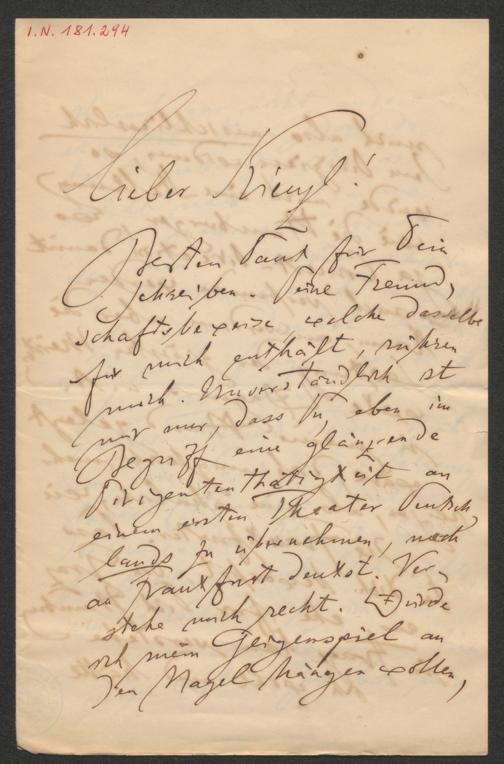 I.N. 181.294
Lieber Kienzl!
Besten Dank für Dein
Schreiben. Deine Freund,
schaftsbeweise, welche dasselbe
für mich enthält, rühren
mich. Unverständlich ist
mir nur, dass Du, eben im
Begriff eine glänzende
Dirigententhätigkeit an
einem ersten Theater Deutsch,
lands zu übernehmen, noch
an Frankfurt denkst. Ver,
stehe mich recht. Würde
ich mein Geigenspiel an
den Nagel hängen wollen,